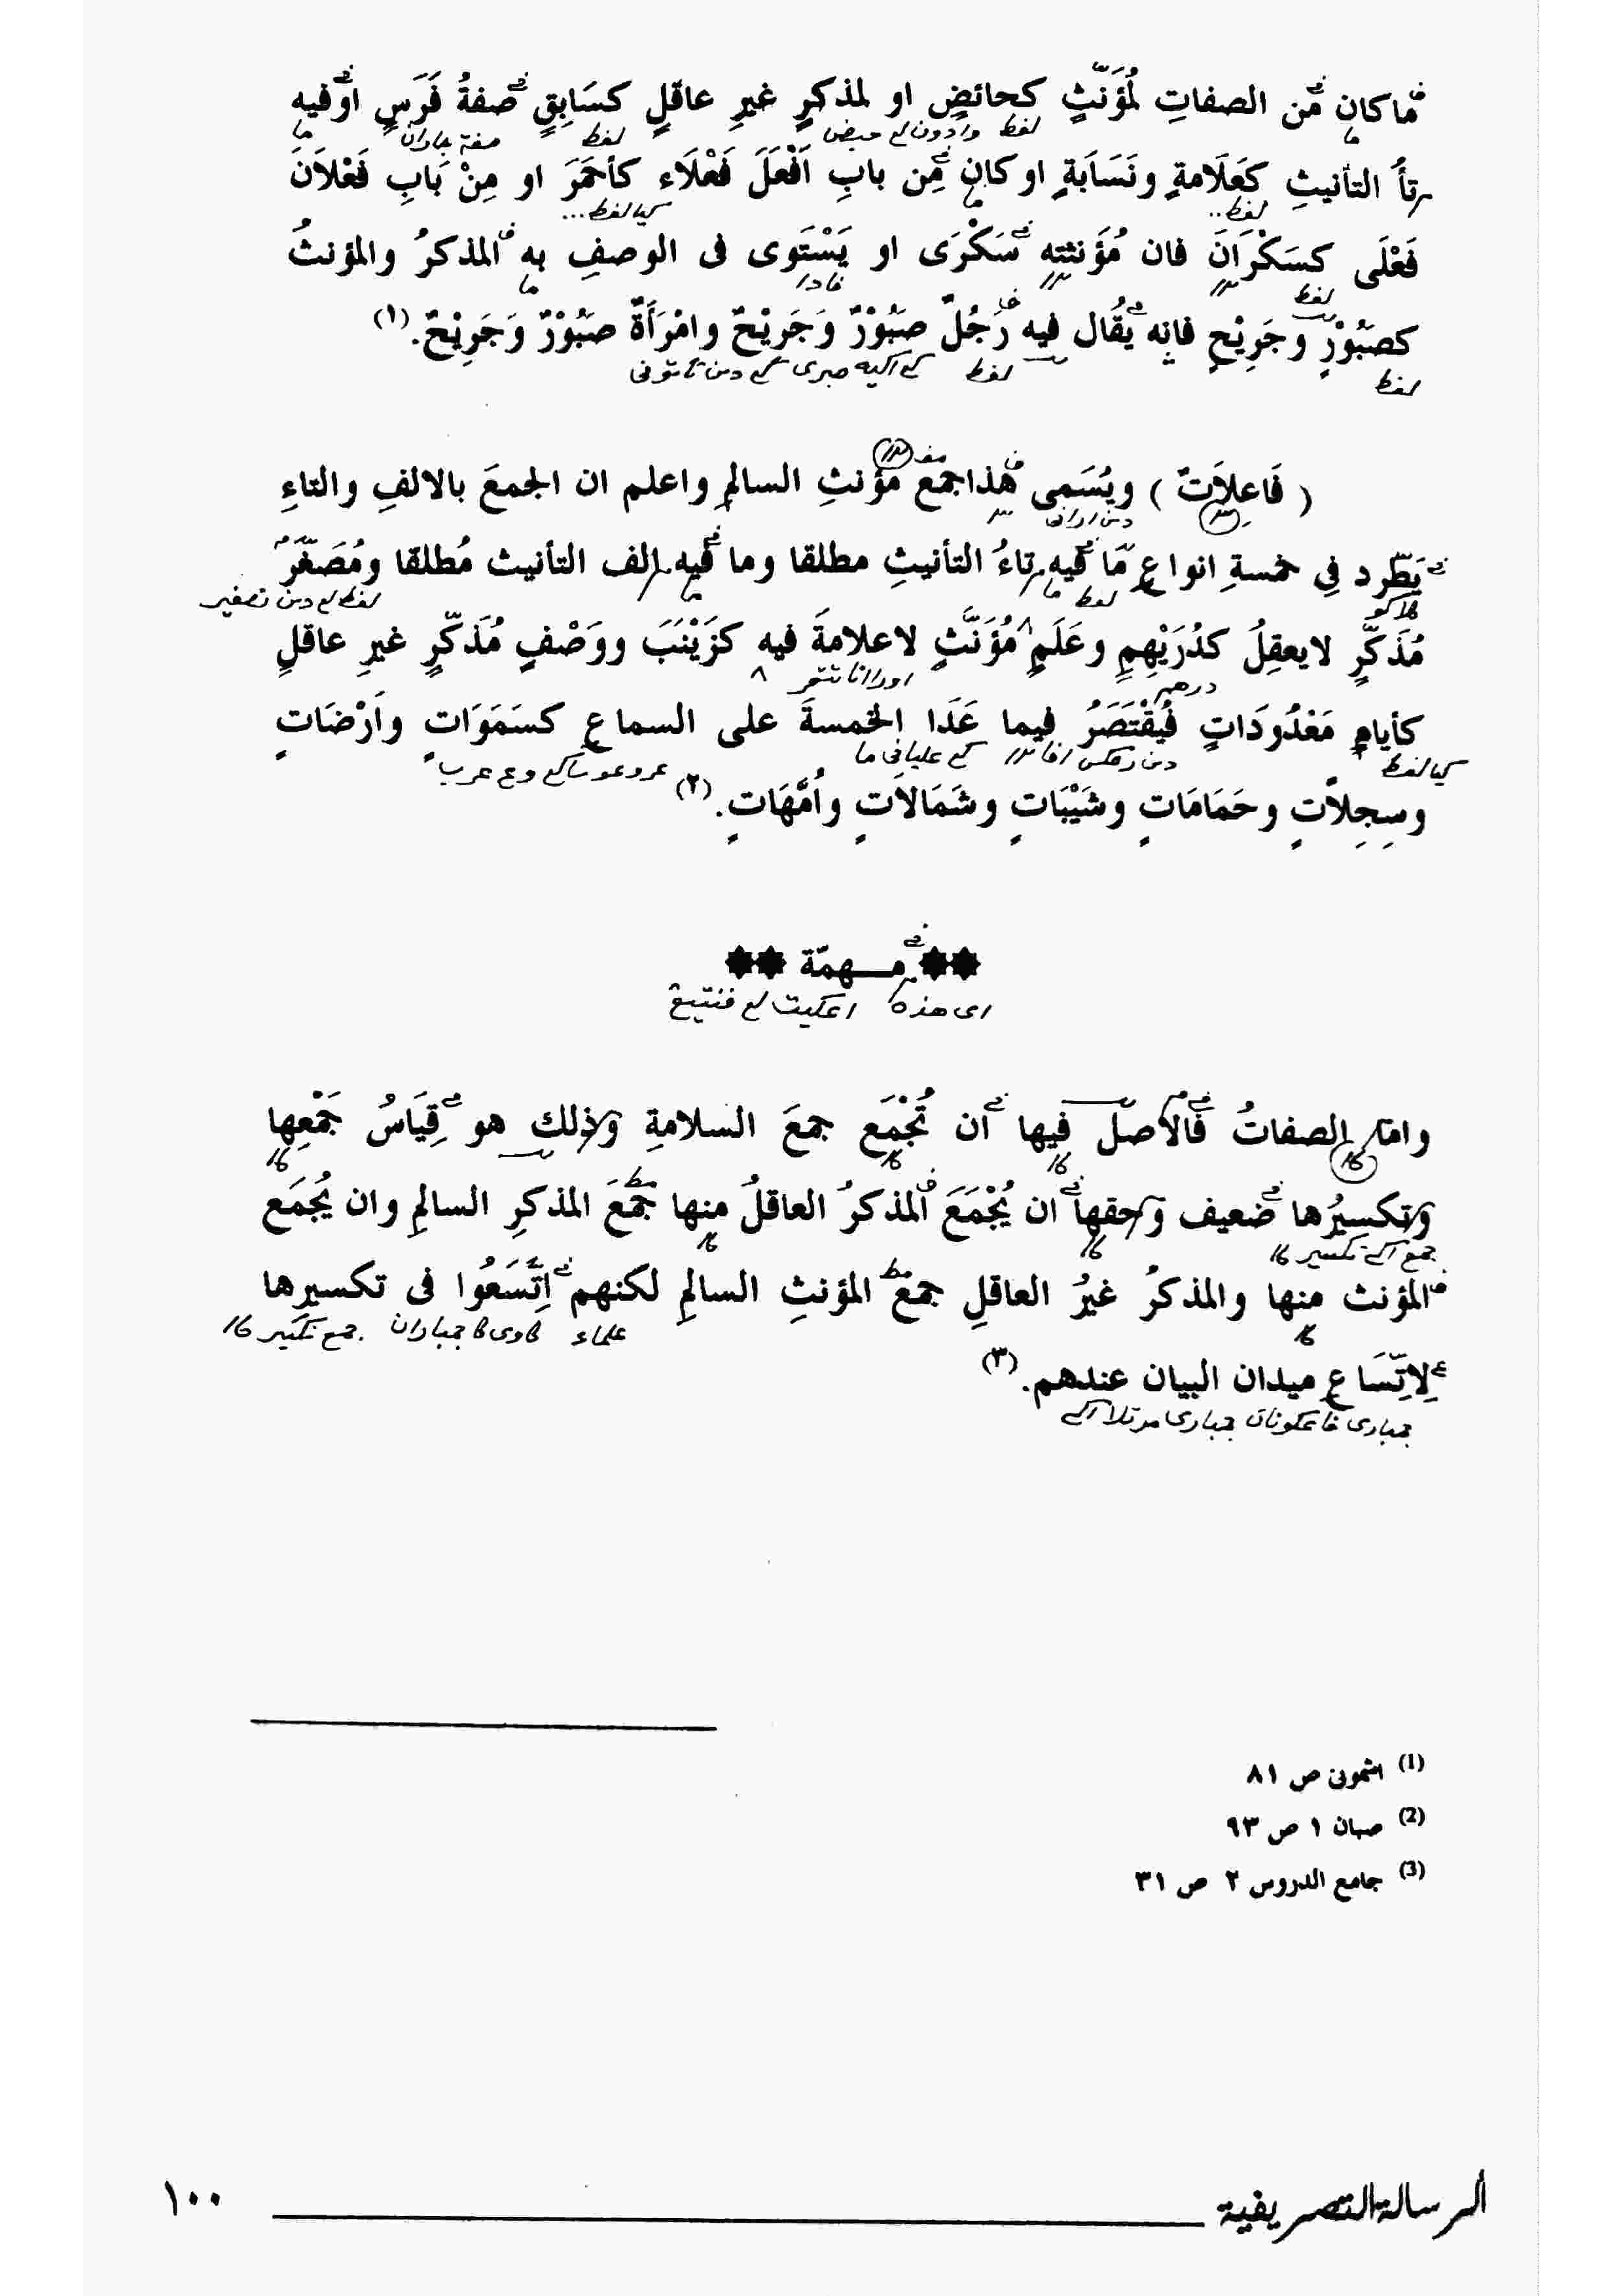 ما كان من الصفاتِ لمُؤَنَّثٍ كحائضٍ او لمذكرٍ غيرِ عاقلٍ كسَابِقٍ صفةُ فَرَسٍ او فيه
لفظ
لفظ
تأُ التأنيثِ كَعَلَامةٍ ونَسَابَةٍ او كان مِن بابِ اَفْعَلَ فَعْلَاء كأحمَرَ او مِنْ بَابِ فَعْلاَنَ
لفظ..
كيا لفظ...
فَعْلَى كسَكْرَانَ فان مُؤَنثته سَكْرَى او يَسْتَوى فى الوصفِ به المذكرُ والمؤنثُ
لفظ
كصَبُوْرٍ وجَرِيْحٍ فانه يُقَال فيه رَجُلٌ صَبُوْرٌ وَجَرِيْحٌ وامْرَأَةٌ صَبُوْرٌ وَجَرِيْحٌ. (١)
لفظ
لفظ
( فَاعِلاَتٌ ) ويُسَمى هذا جمْع مؤنثِ السالمِ واعلم ان الجمعَ بالالفِ والتاءِ
يَطّرد فِي خمسةِ انواعٍ مَّا فيه تاءُ التأنيثِ مطلقا وما فيه الف التأنيث مُطلقا ومُصَغَّرُ
لفظ
مُذَكَّرٍ لايعقِلُ كدُرَيْهِمٍ وعَلَمٍ مُؤَنَّثٍ لاعلامةَ فيه كزَيْنَبَ ووَصْفٍ مُذَكّرٍ غيرِ عاقلٍ
درهم
كأيامٍ مَعْدُودَاتٍ فيُقْتَصَرُ فيما عَدَا الخمسةَ على السماعِ كسَمَوَاتٍ واَرْضَاتٍ
كيا لفظ
وسِجِلاَّتٍ وحَمَامَاتٍ وشَيْبَاتٍ وشَمَالاَتٍ واُمَّهَاتٍ. (٢)
** مـهمّة **
اى هذه
وامّا الصفاتُ فالاَصلُ فيها ان تُجْمَع جمعَ السلامةِ وذلك هو قِيَاسُ جَمْعِها
وتكسيرُها ضعيف وحقها ان يُجْمَعَ المذكرُ العاقلُ منها جَمْعَ المذكرِ السالمِ وان يُجْمَع
المؤنث منها والمذكرُ غيرُ العاقلِ جمعَ المؤنثِ السالمِ لكنهم اِتَّسَعُوا فى تكسيرِها
علماء
جمع تكسير
لِاِتِّسَاعِ ميدان البيان عندهم. (٣)
(1) اشمونى ص ٨١
(2) صبان ١ ص ٩٣
(3) جامع الدروس ٢ ص ٣١
الرسالة التصريفية
١٠٠